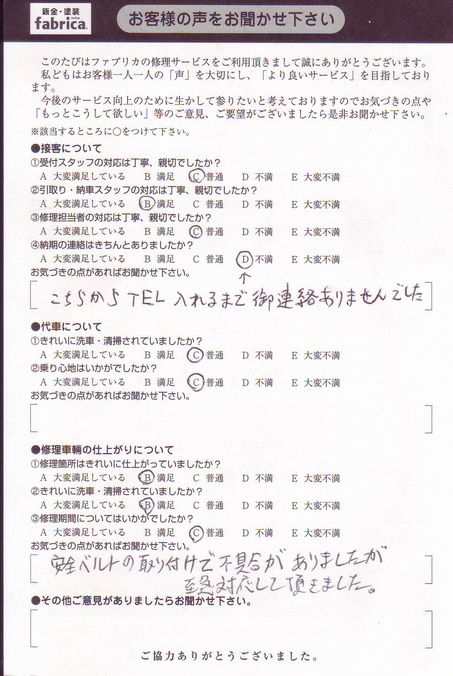 鈑金・塗装
fabrica.
お客様の声をお聞かせ下さい
このたびはファブリカの修理サービスをご利用頂きまして誠にありがとうございます。
私どもはお客様一人一人の「声」を大切にし、「より良いサービス」を目指しており
ます。
今後のサービス向上のために生かして参りたいと考えておりますのでお気づきの点や
「もっとこうして欲しい」等のご意見、ご要望がございましたら是非お聞かせ下さい。
※該当するところに○をつけて下さい。
●接客について
①受付スタッフの対応は丁寧、親切でしたか？
A 大変満足している B 満足 C 普通 D 不満 E 大変不満
②引取り・納車スタッフの対応は丁寧、親切でしたか？
A 大変満足している B 満足 C 普通 D 不満 E 大変不満
③修理担当者の対応は丁寧、親切でしたか？
A 大変満足している B 満足 C 普通 D 不満 E 大変不満
④納期の連絡はきちんとありましたか？
A 大変満足している B 満足 C 普通 D 不満 E 大変不満
お気づきの点があればお聞かせ下さい。
こちらからTEL入れるまで御連絡ありませんでした
●代車について
①きれいに洗車・清掃されていましたか？
A 大変満足している B 満足 C 普通 D 不満 E 大変不満
②乗り心地はいかがでしたか？
A 大変満足している B 満足 C 普通 D 不満 E 大変不満
お気づきの点があればお聞かせ下さい。
●修理車輌の仕上がりについて
①修理箇所はきれいに仕上がっていましたか？
A 大変満足している B 満足 C 普通 D 不満 E 大変不満
②きれいに洗車・清掃されていましたか？
A 大変満足している B 満足 C 普通 D 不満 E 大変不満
③修理期間についてはいかがでしたか？
A 大変満足している B 満足 C 普通 D 不満 E 大変不満
お気づきの点があればお聞かせ下さい。
安全ベルトの取り付けで不具合がありましたが
至急対応して頂きました。
●その他ご意見がありましたらお聞かせ下さい。
ご協力ありがとうございました。